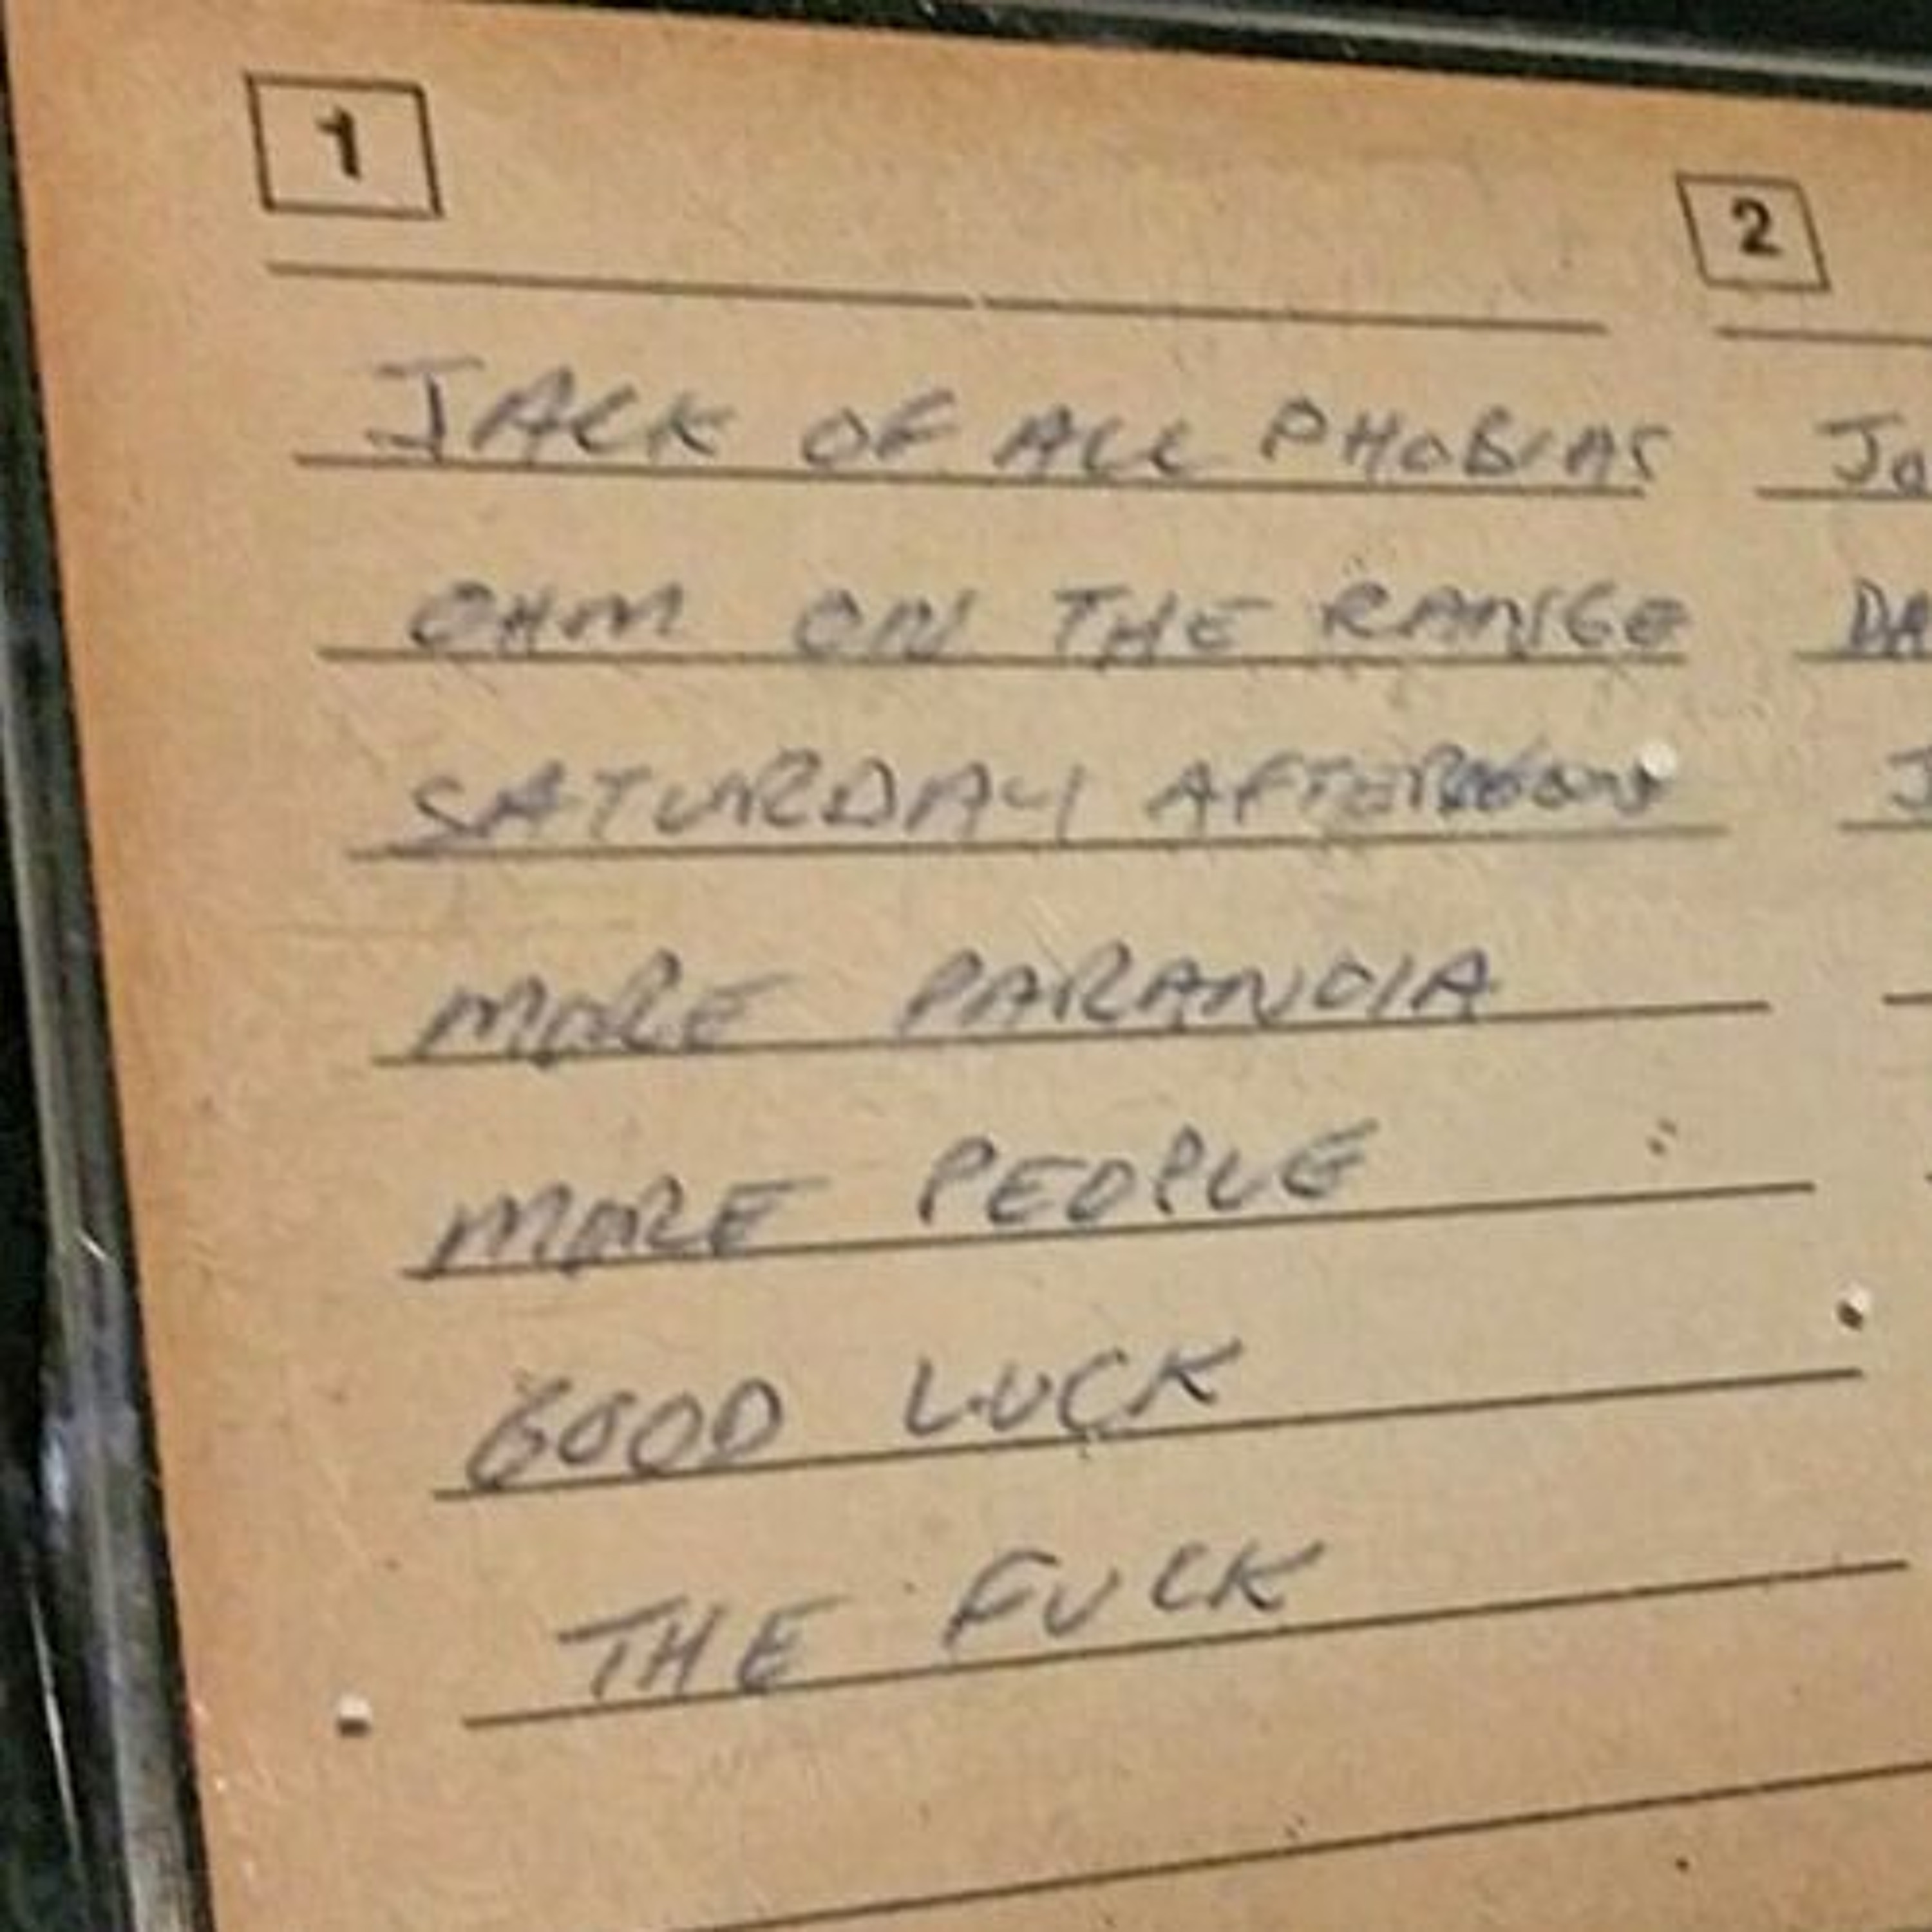 1
2
JACK OF ALL PHOBIAS
Jo
OHM ON THE RANGE
DA
SATURDAY AFTERNOON
J
MORE PARANOIA
MORE PEOPLE
GOOD LUCK
THE FUCK